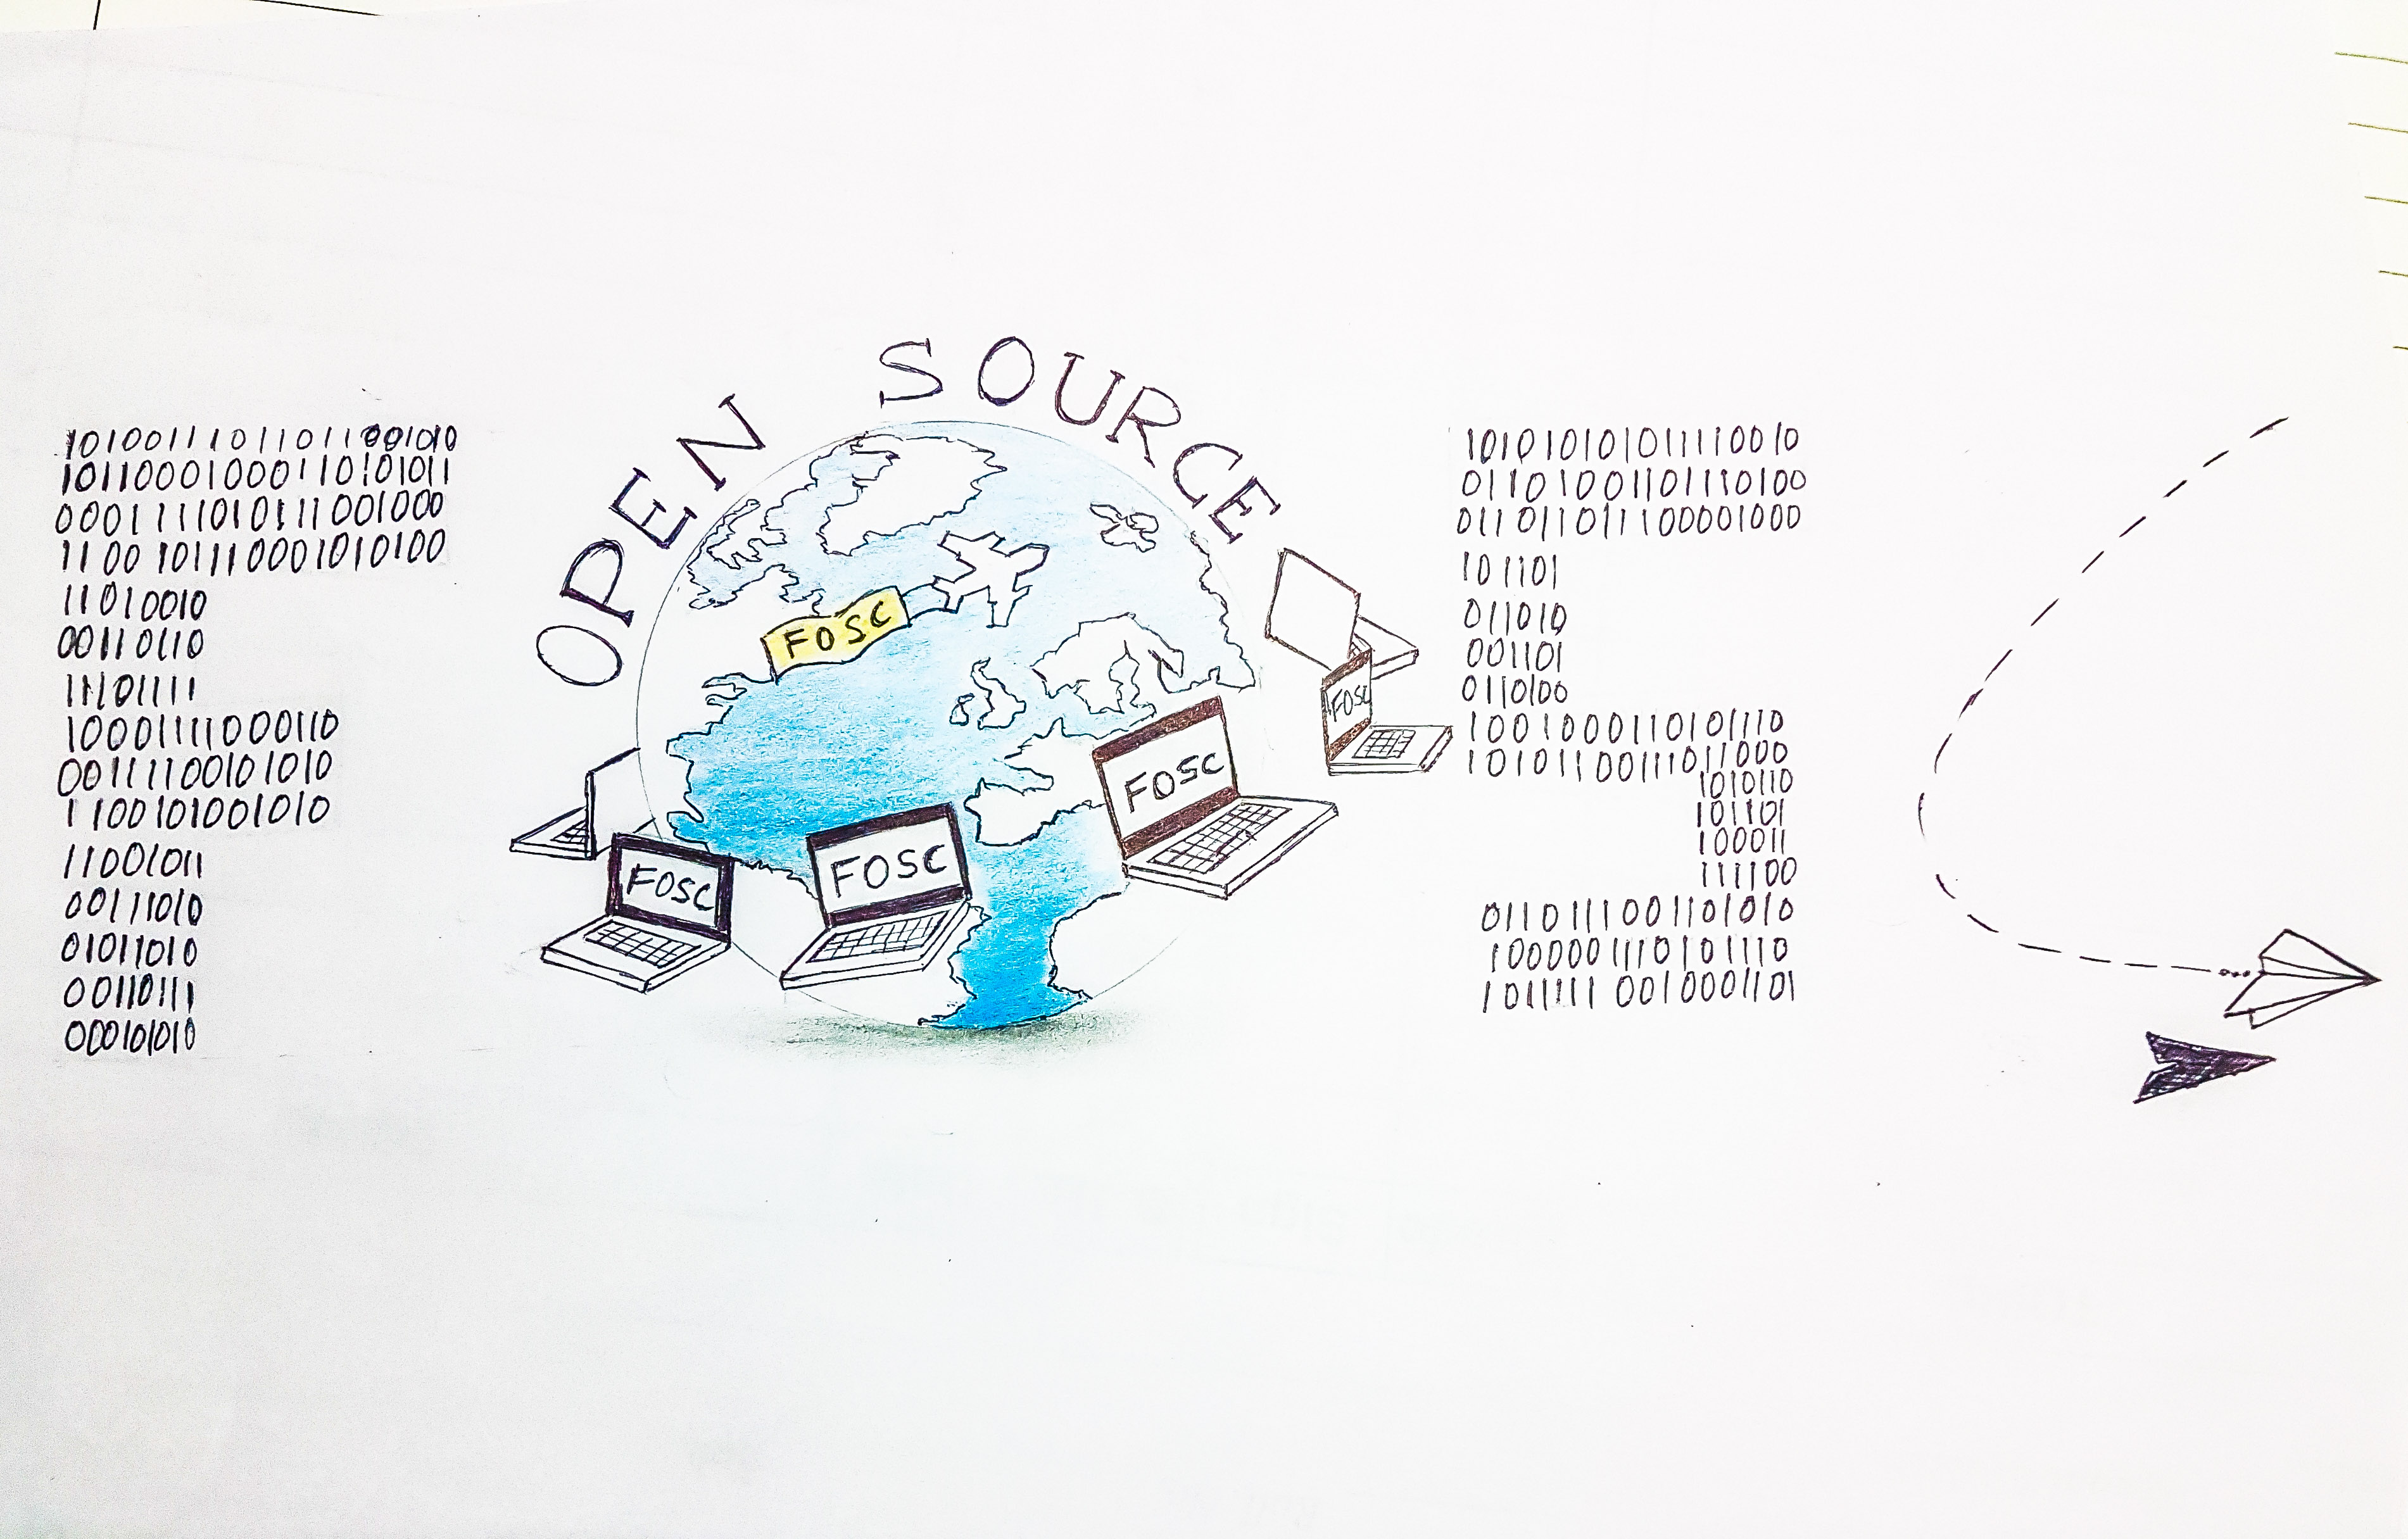 OPEN SOURCE
10100111011011001010
10110001000110101011
0001111010111001000
1100101110001010100
11010010
00110110
11101111
10001111000110
00111100101010
1100101001010
11001011
00111010
01011010
00110111
00010101
FOSC
FOSC
FOSC
FOSC
FOSC
101010101011110010
011010011011110100
011011011100001000
101101
011010
001101
0110100
1001000110101110
1010110011101 1000
1010110
101101
100011
111100
0110111001101010
1000001110101110
10111110010001101